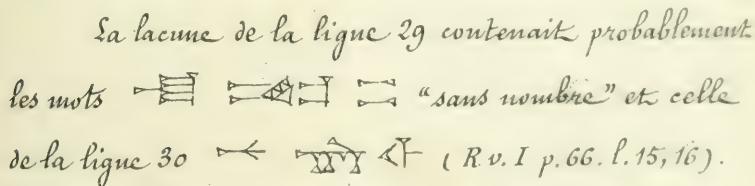 La lacune de la ligne 29 contenait probablement
les mots "sans nombre" et celle
de la ligne 30 (R. v. I p. 66. l. 15, 16).